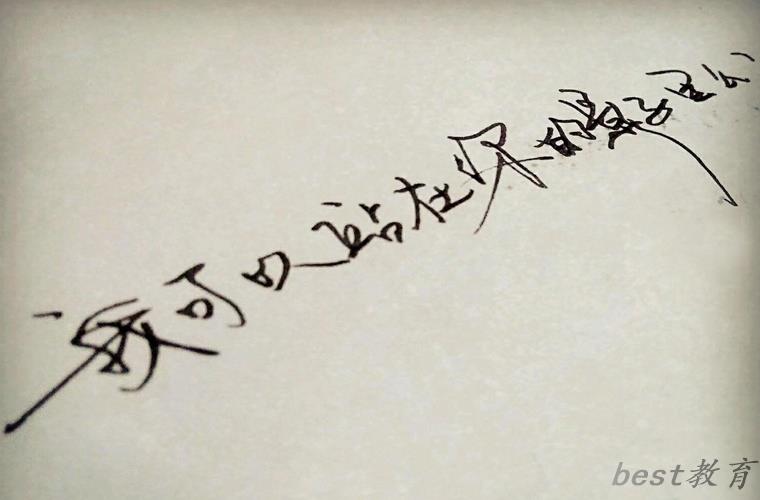 我可以站在你的影子里
best教育